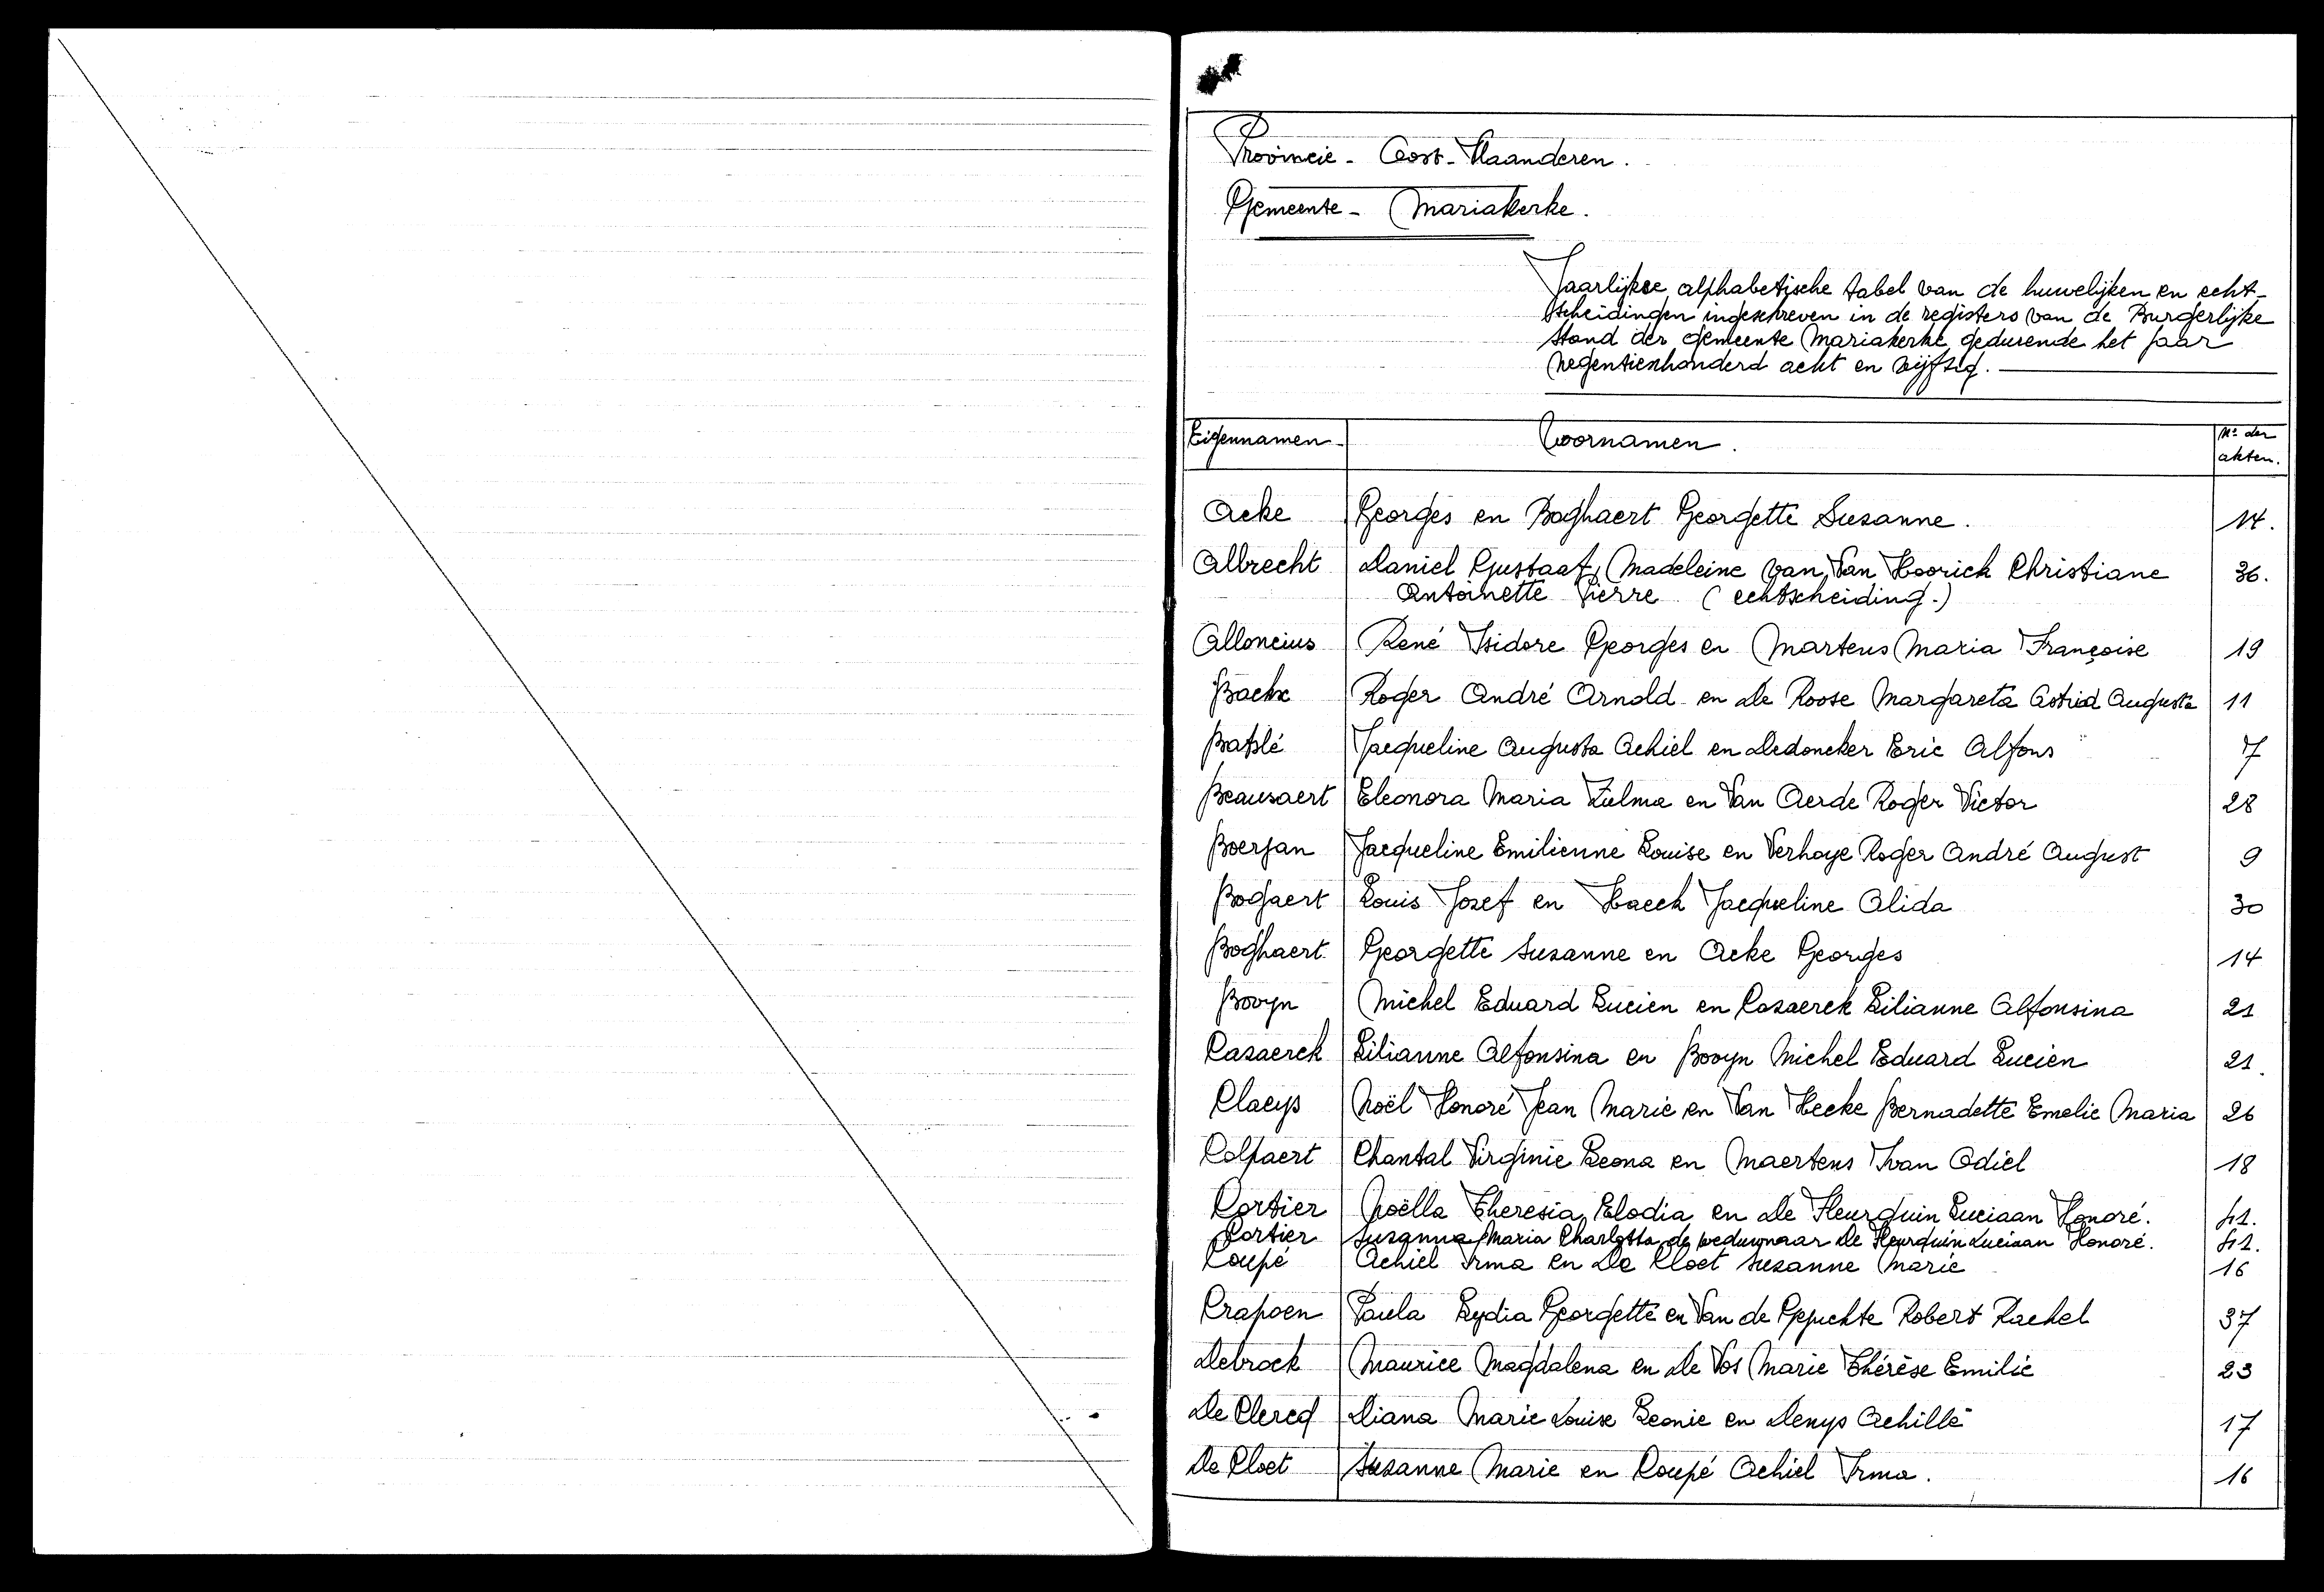 Provincie - Oost-Vlaanderen.
Gemeente - Mariakerke.
Jaarlijkse alphabetische tabel van de huwelijken en echt-
scheidingen ingeschreven in de registers van de Burgerlijke
stand der gemeente Mariakerke gedurende het jaar
negentienhonderd acht en vijftig.
Eigennamen Voornamen. Nº der akten.
Acke Georges en Boghaert Georgette Susanne. 14.
Albrecht Daniel Gustaaf Madeleine van Van Hoorick Christiane 36.
Antoinette Pierre (echtscheiding.)
Alloncius René Isidore Georges en Martens Maria Françoise 19
Backx Roger André Arnold en De Roose Margareta Astrid Augusta 11
Baplé Jacqueline Augusta Achiel en Dedoncker Eric Alfons 7
Beausaert Eleonora Maria Zulma en Van Aerde Roger Victor 28
Boerjan Jacqueline Emilienne Louise en Verhaye Roger André August 9
Bogaert Louis Jozef en Haeck Jacqueline Alida 30
Boghaert. Georgette Susanne en Acke Georges 14
Booyn Michel Eduard Lucien en Casaerck Lilianne Alfonsina 21
Casaerck Lilianne Alfonsina en Booyn Michel Eduard Lucien 21.
Claeys Noël Honoré Jean Marie en Van Hecke Bernadette Emelie Maria 26
Colpaert Chantal Virginie Leona en Maertens Ivan Odiel 18
Cortier Noëlla Theresia Elodia en De Fleurquin Luciaan Honoré. 41.
Cortier Susanna Maria Charlotta de weduwnaar De Fleurquin Luciaan Honoré. 41.
Coupé Achiel Irma en De Cloet Susanne Marie 16
Crapoen Paula Lydia Georgette en Van de Gejuchte Robert Rachel 37
Debrock Maurice Magdalena en De Vos Marie Thérèse Emilie 23
De Clercq Diana Marie Louise Leonie en Denys Achille 17
De Cloet Susanne Marie en Coupé Achiel Irma. 16